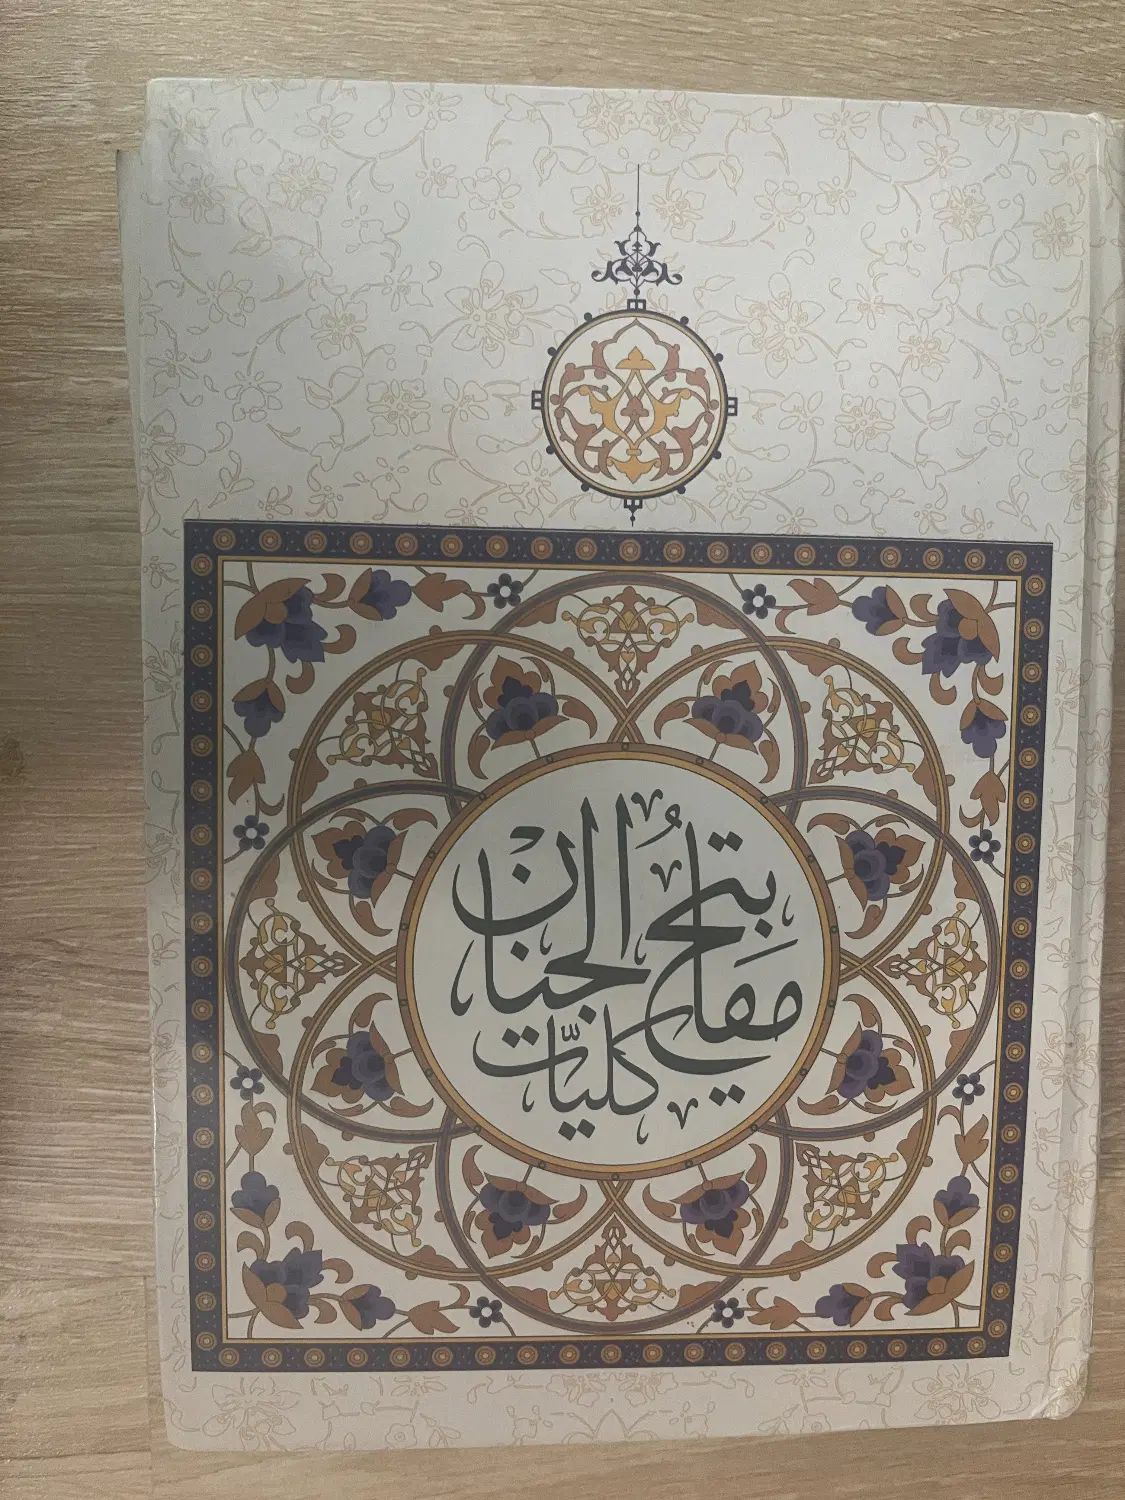 كليات
مفاتيح الجنان